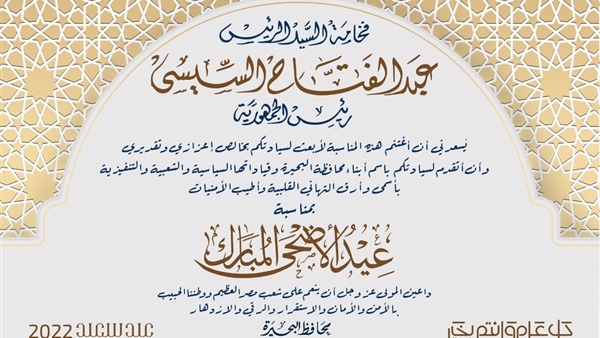 فخامة السيد الرئيس
عبد الفتاح السيسى
رئيس الجمهورية
يُسعدني أن أغتنم هذه المناسبة لأبعث لسيادتكم بخالص إعزازي وتقديري
وأن أتقدم لسيادتكم باسم أبناء محافظة البحيرة وقياداتها السياسية والشعبية والتنفيذية
بأسمى وأرق التهاني القلبية وأطيب الأمنيات
بمناسبة
عيد الأضحى المبارك
داعين المولى عز وجل أن ينعم على شعب مصر العظيم ووطننا الحبيب
بالأمن والأمان والاستقرار والرقي والازدهار
محافظ البحيرة
كل عام وانتم بخير
عيد سعيد 2022